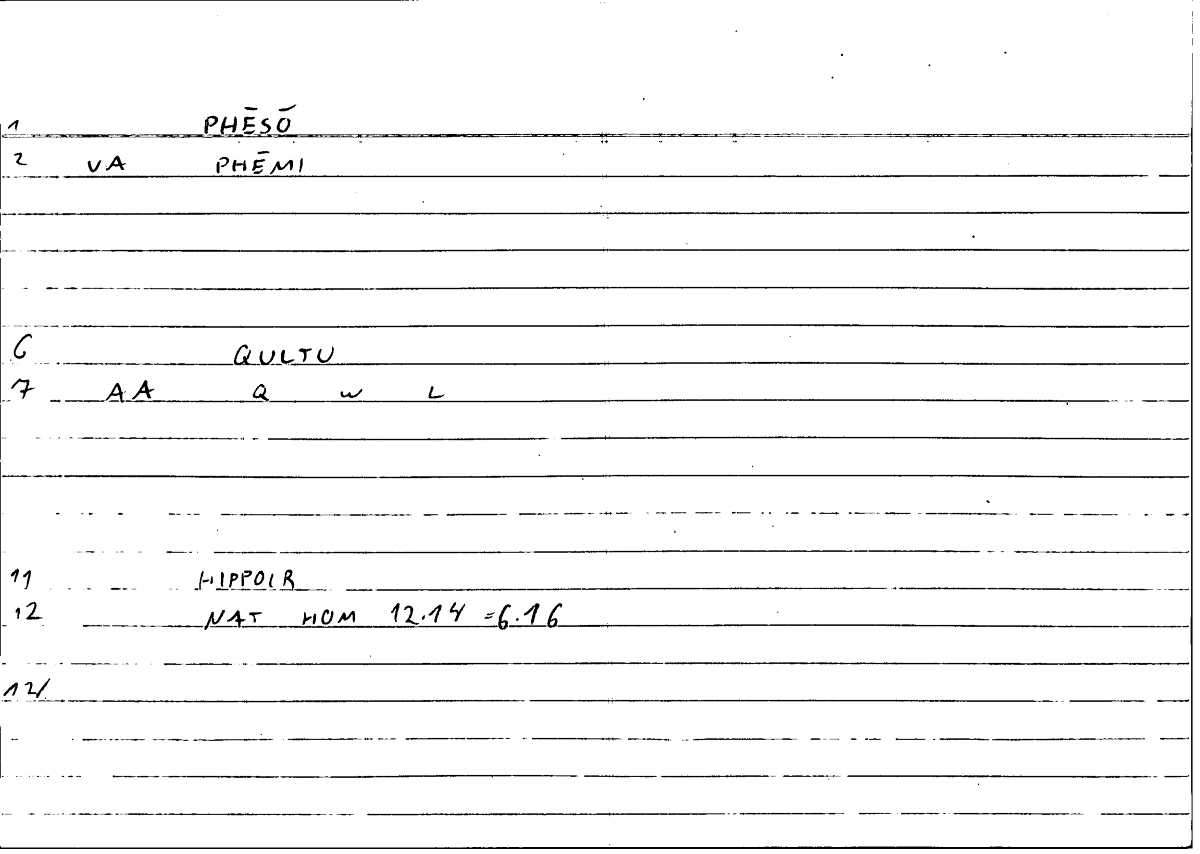 1 PHĒSŌ
2 VA PHĒMI
6 QULTU
7 AA Q W L
11 HIPPOCR
12 NAT HOM 12.14 =6.16
12/